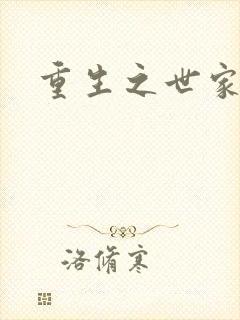 重生之世家
洛脩寒